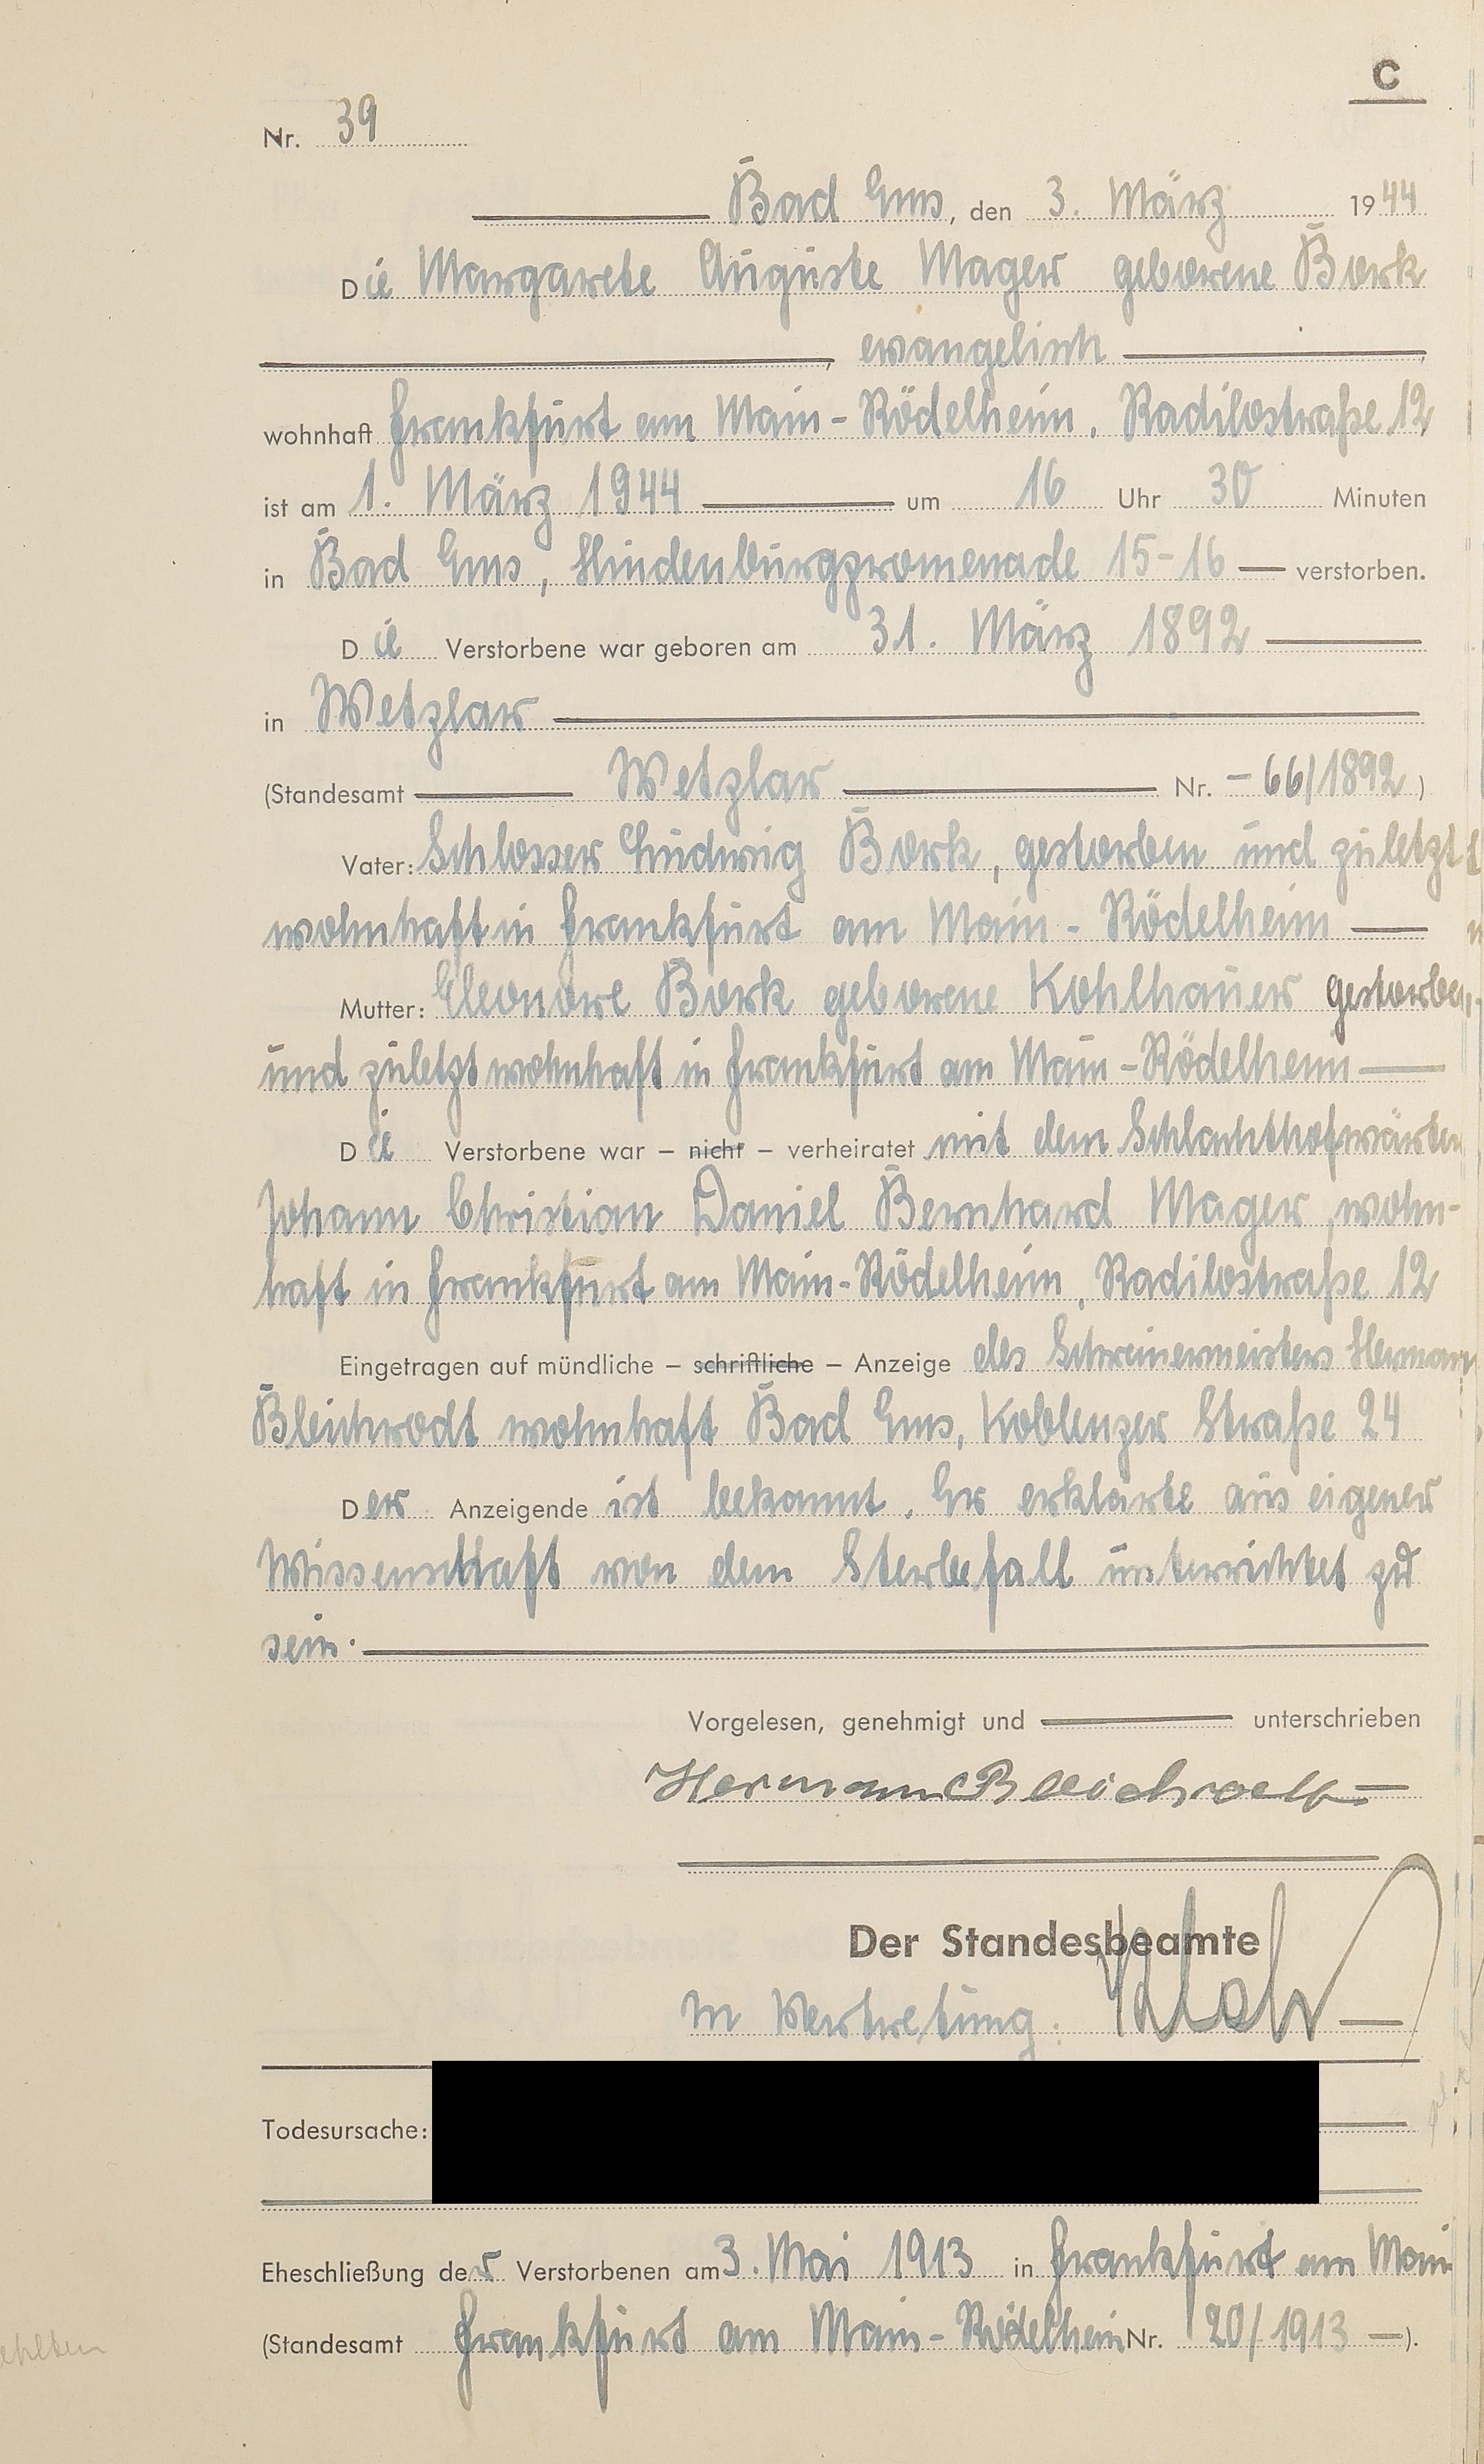 C
Nr. 39
Bad Ems, den 3. März 1944
Die Margarete Auguste Mager geborene Bork
, evangelisch ,
wohnhaft Frankfurt am Main-Rödelheim, Radilostraße 12
ist am 1. März 1944 um 16 Uhr 30 Minuten
in Bad Ems, Hindenburgpromenade 15-16 — verstorben.
Die Verstorbene war geboren am 31. März 1892
in Wetzlar
(Standesamt Wetzlar Nr. – 66/1892)
Vater: Schlosser Ludwig Bork, gestorben und zuletzt
wohnhaft in Frankfurt am Main - Rödelheim —
Mutter: Eleonore Bork geborene Kohlhauer gestorben
und zuletzt wohnhaft in Frankfurt am Main-Rödelheim —
Die Verstorbene war – nicht – verheiratet mit dem Schlachthofwärter
Johann Christian Daniel Bernhard Mager, wohn-
haft in Frankfurt am Main-Rödelheim, Radilostraße 12
Eingetragen auf mündliche – schriftliche – Anzeige des Schreinermeisters Hermann
Bleichrodt wohnhaft Bad Ems, Koblenzer Straße 24
Der Anzeigende ist bekannt. Er erklärte aus eigener
Wissenschaft von dem Sterbefall unterrichtet zu
sein.
Vorgelesen, genehmigt und unterschrieben
Hermann Bleichrodt
Der Standesbeamte
In Vertretung:
Todesursache:
Eheschließung der Verstorbenen am 3. Mai 1913 in Frankfurt am Main
(Standesamt Frankfurt am Main-Rödelheim Nr. 20/1913 —).